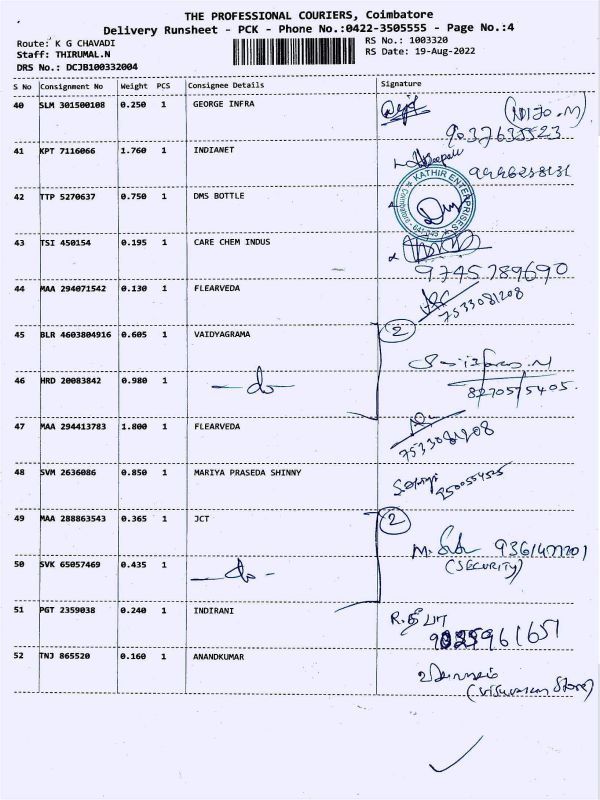 THE PROFESSIONAL COURIERS, Coimbatore
Delivery Runsheet - PCK - Phone No.:0422-3505555 - Page No.:4
Route: K G CHAVADI
RS No.: 1003320
Staff: THIRUMAL.N
RS Date: 19-Aug-2022
DRS No.: DCJB100332004
S No Consignment No Weight PCS Consignee Details Signature
40 SLM 301500108 0.250 1 GEORGE INFRA
9037635523
41 KPT 7116066 1.760 1 INDIANET
9446258131
42 TTP 5270637 0.750 1 DMS BOTTLE
KATHIR ENTERPRISES
43 TSI 450154 0.195 1 CARE CHEM INDUS
9745789690
44 MAA 294071542 0.130 1 FLEARVEDA
7533081208
45 BLR 4603804916 0.605 1 VAIDYAGRAMA 2
46 HRD 20083842 0.980 1 -do-
8270575405.
47 MAA 294413783 1.800 1 FLEARVEDA
7533081208
48 SVM 2636086 0.850 1 MARIYA PRASEDA SHINNY
9500554525
49 MAA 288863543 0.365 1 JCT 2
50 SVK 65057469 0.435 1 -do-
(SECURITY)
51 PGT 2359038 0.240 1 INDIRANI
R. தீபா
52 TNJ 865520 0.160 1 ANANDKUMAR